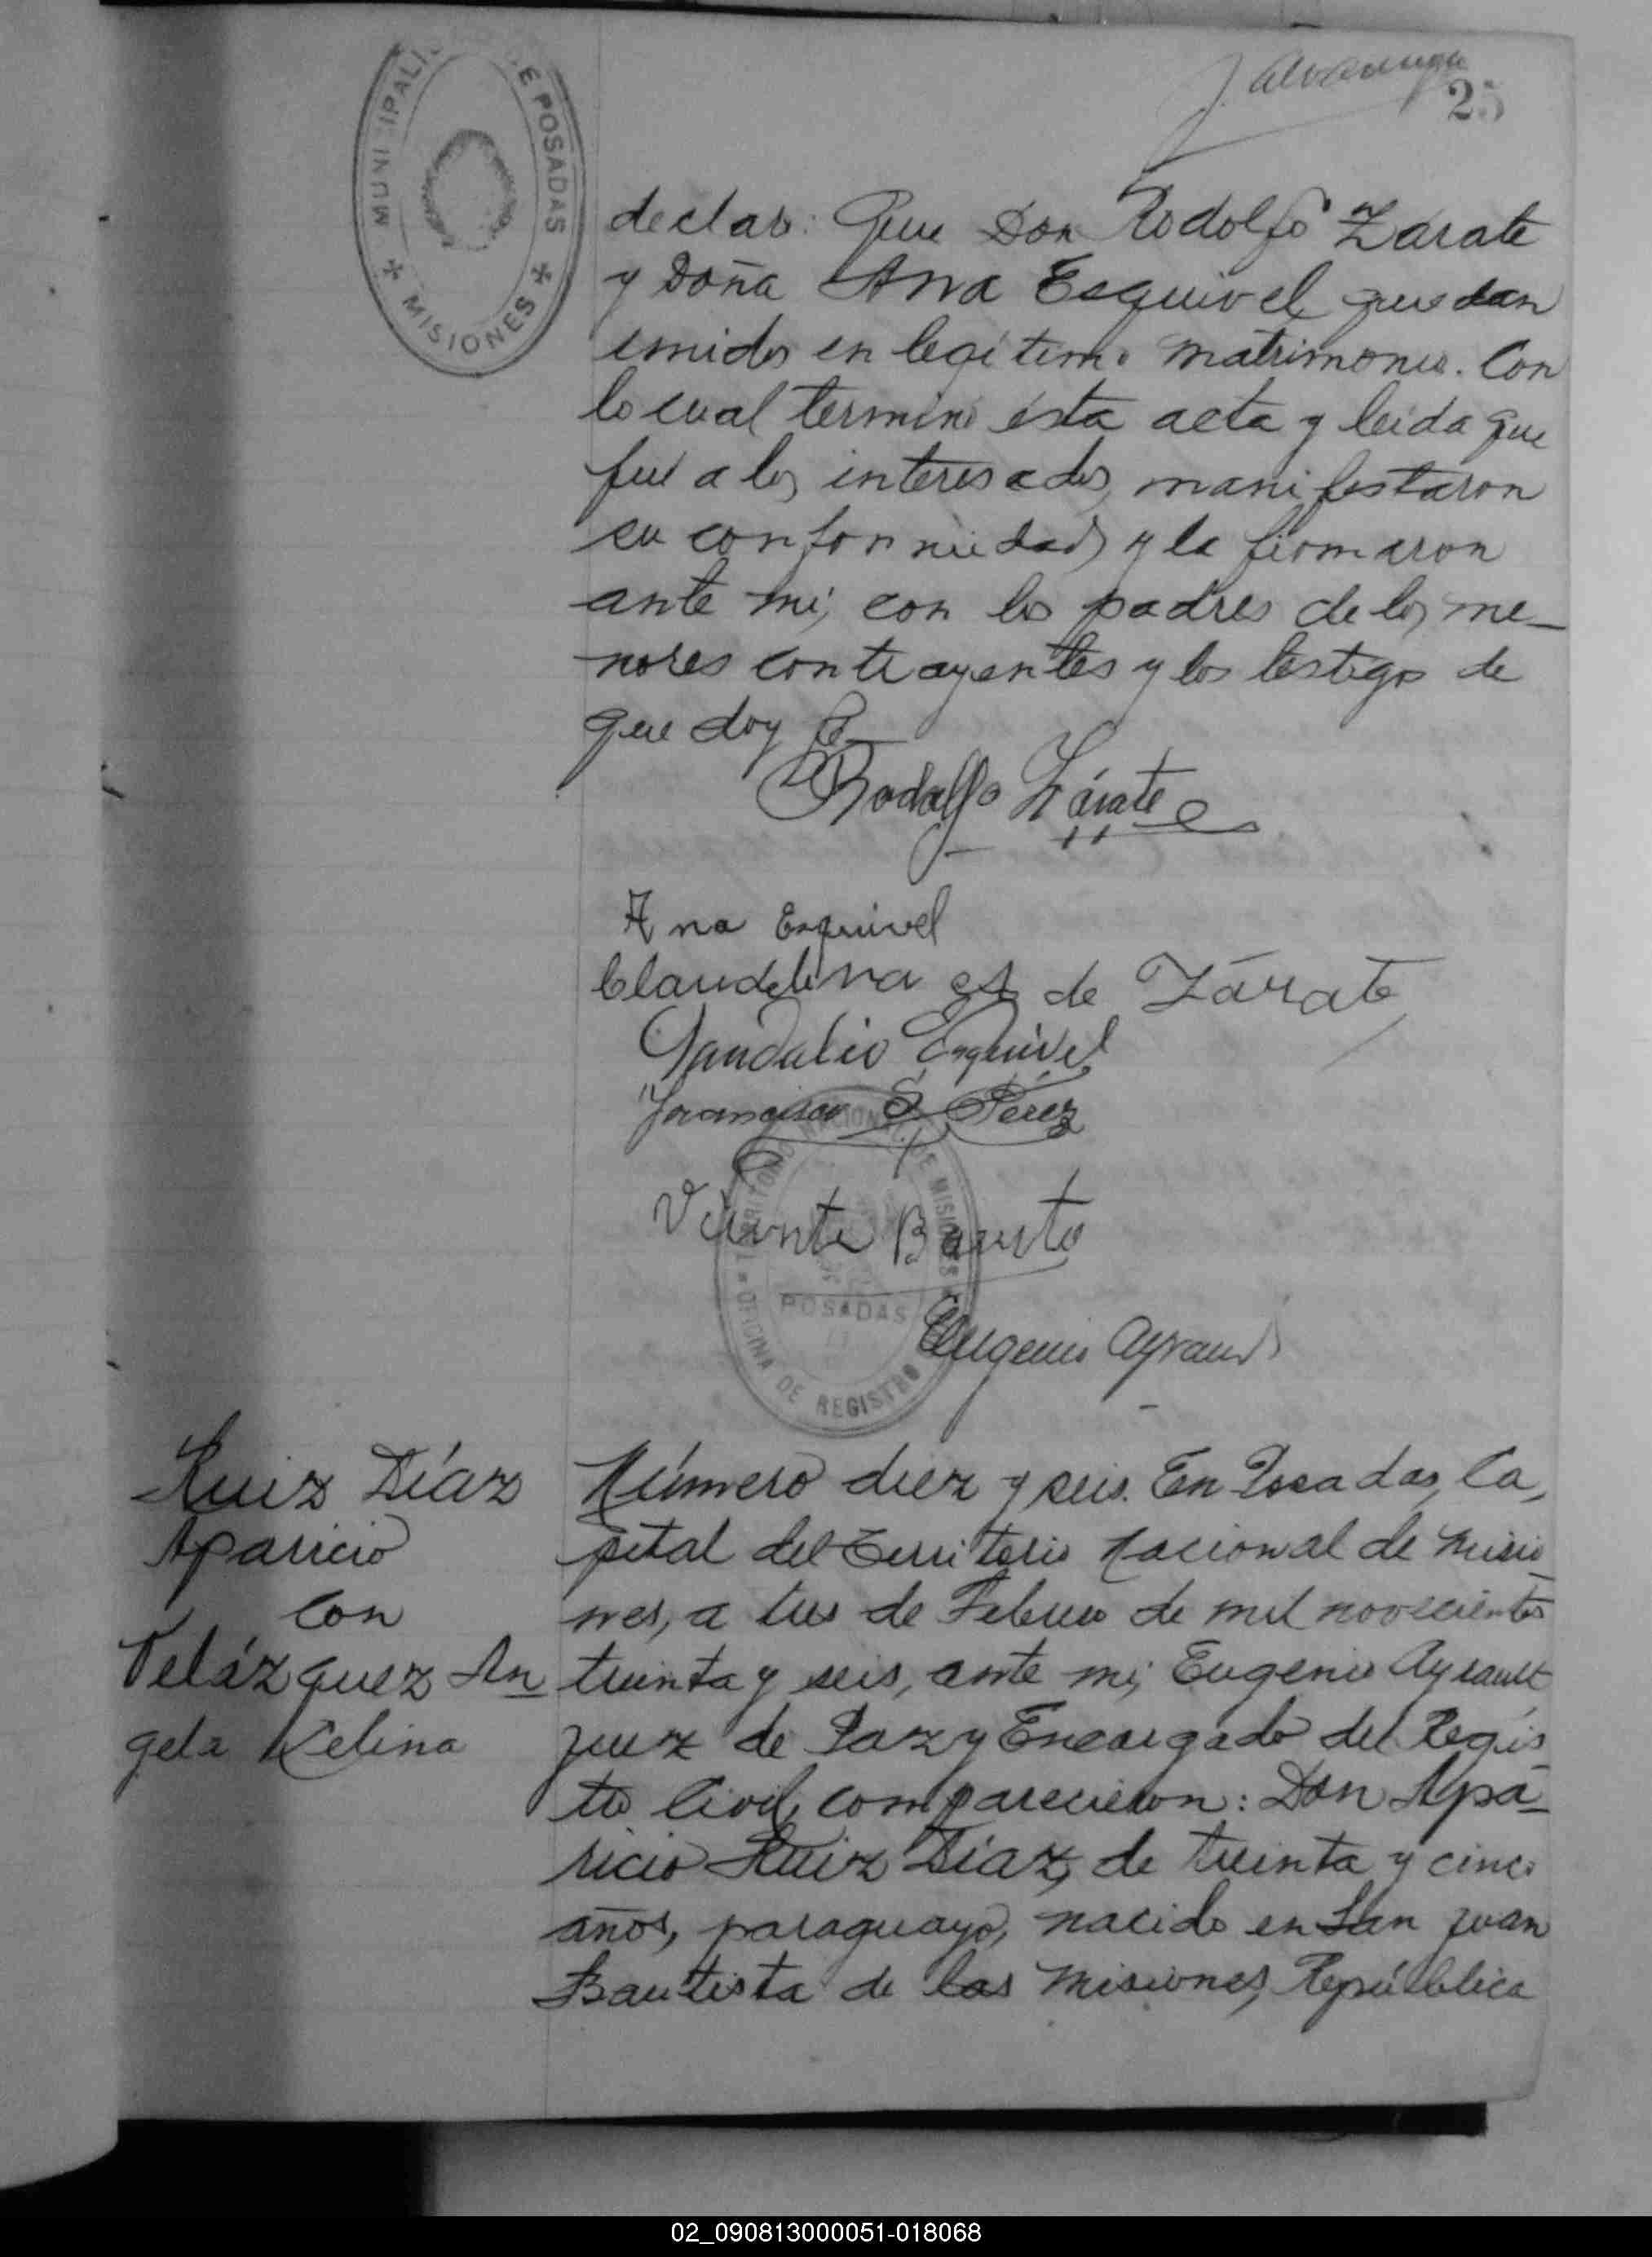 25
MUNICIPALI E POSADAS
MISIONES
declaro: Que Don Rodolfo Zárate
y Doña Ana Esquivel, quedan
unidos en legítimo matrimonio. Con
lo cual terminó ésta acta y leida que
fué a los interesados, manifestaron
su conformidad y la firmaron
ante mi, con los padres de los me-
nores contrayentes y los testigos de
que doy fé-
Rodolfo Zárate
Ana Esquivel
de Zárate
Esquivel
Francisco S. Pérez
Vicente
TERRITORIO NACIONAL DE MISIONES
POSADAS
OFICINA DE REGISTRO
Eugenio Ayrault
Ruiz Díaz
Aparicio
con
Velázquez An
gela Celina
Número diez y seis. En Posadas, Ca-
pital del Territorio Nacional de Misio
nes, a tres de Febrero de mil novecientos
treinta y seis, ante mi, Eugenio Ayrault
Juez de Paz y Encargado del Regis
tro Civil, comparecieron: Don Apa-
ricio Ruiz Díaz, de treinta y cinco
años, paraguayo, nacido en San Juan
Bautista de las Misiones, República
02_090813000051-018068